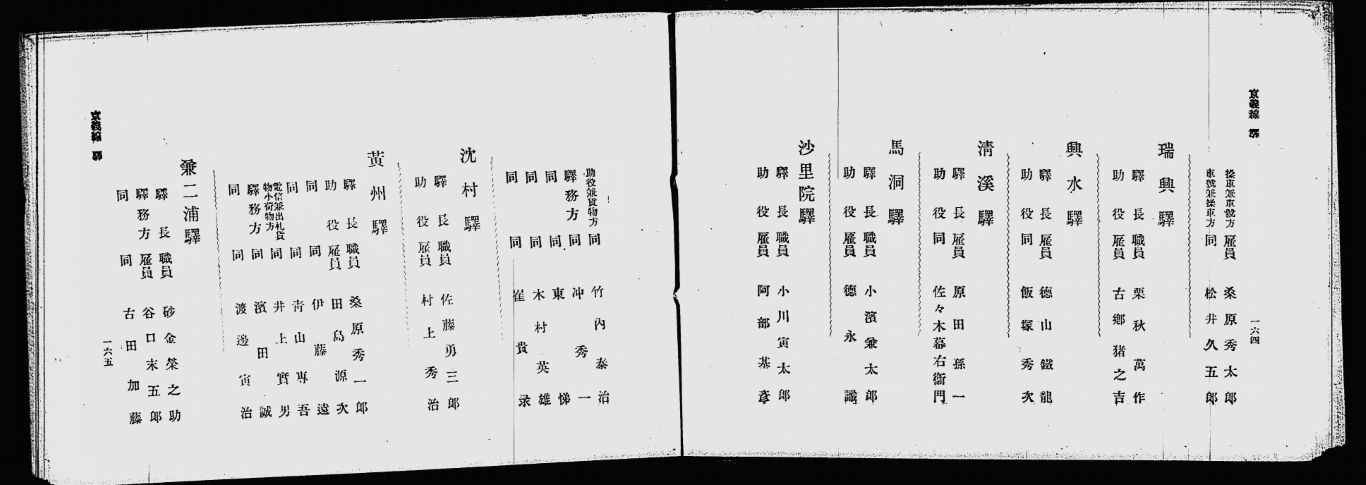 京義線 驛
一六四
操車兼車號方 雇員 桑原秀太郎
車號兼操車方 同 松井久五郎
瑞興驛
驛長 職員 栗秋萬作
助役 雇員 古鄕猪之吉
興水驛
驛長 雇員 德山鐵龍
助役 同 飯塚秀次
淸溪驛
驛長 雇員 原田孫一
助役 同 佐々木幕右衞門
馬洞驛
驛長 職員 小濱兼太郎
助役 雇員 德永識
沙里院驛
驛長 職員 小川寅太郎
助役 雇員 阿部基彥
助役兼貨物方 同 竹內泰治
驛務方 同 沖秀一
同 同 東悌
同 同 木村英雄
同 同 崔貴录
沈村驛
驛長 職員 佐藤勇三郎
助役 雇員 村上秀治
黃州驛
驛長 職員 桑原秀一郎
助役 雇員 田島源次
同 同 伊藤遠
同 同 靑山專吾
電信兼出札貨物小荷物方 同 井上實男
驛務方 同 濱田誠
同 同 渡邊寅治
兼二浦驛
驛長 職員 砂金榮之助
驛務方 雇員 谷口末五郎
同 同 古田加藤
京義線 驛
一六五